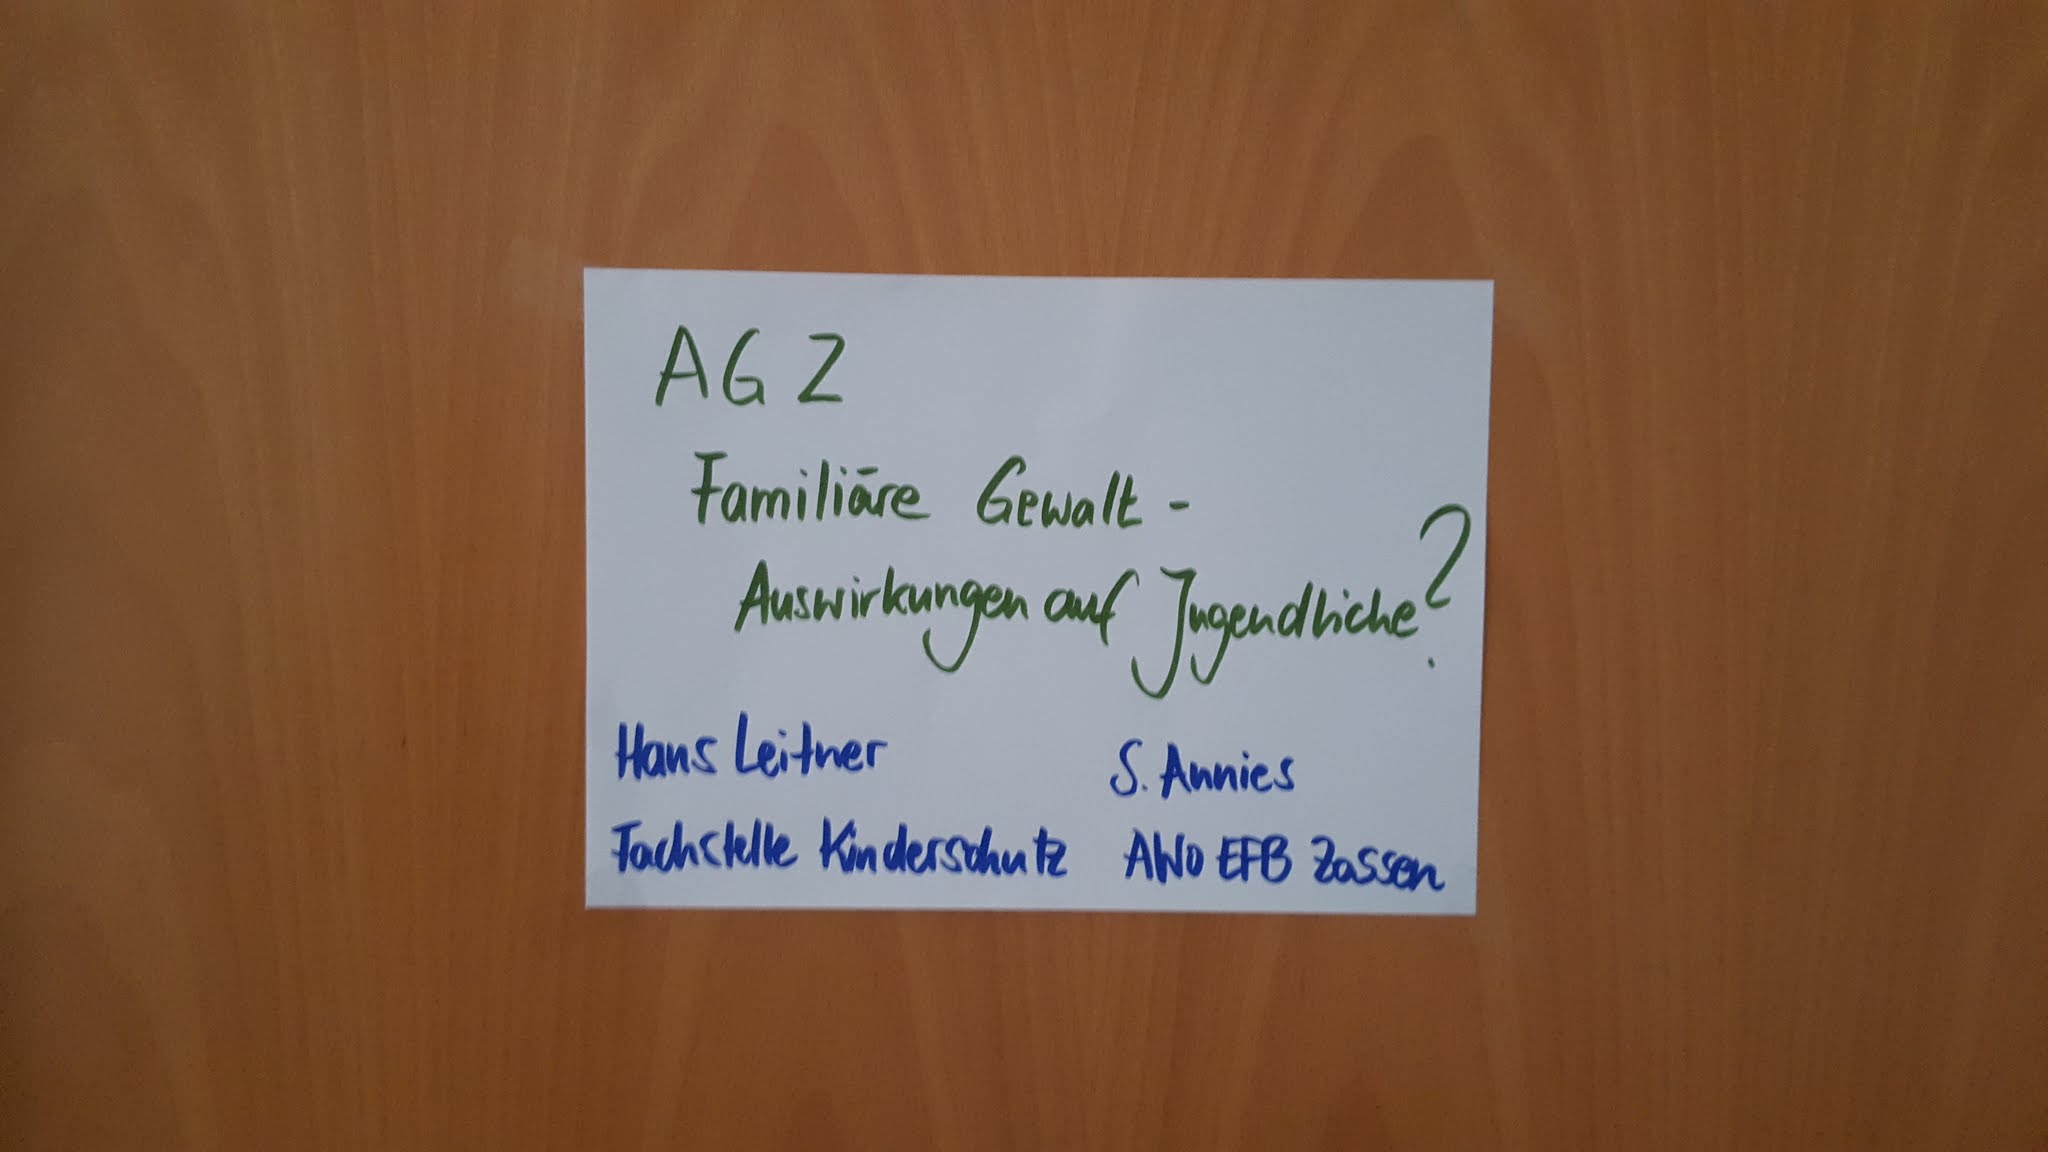 AG 2
Familiäre Gewalt -
Auswirkungen auf Jugendliche?
Hans Leitner
S. Annies
Fachstelle Kinderschutz
AWO EFB Zossen